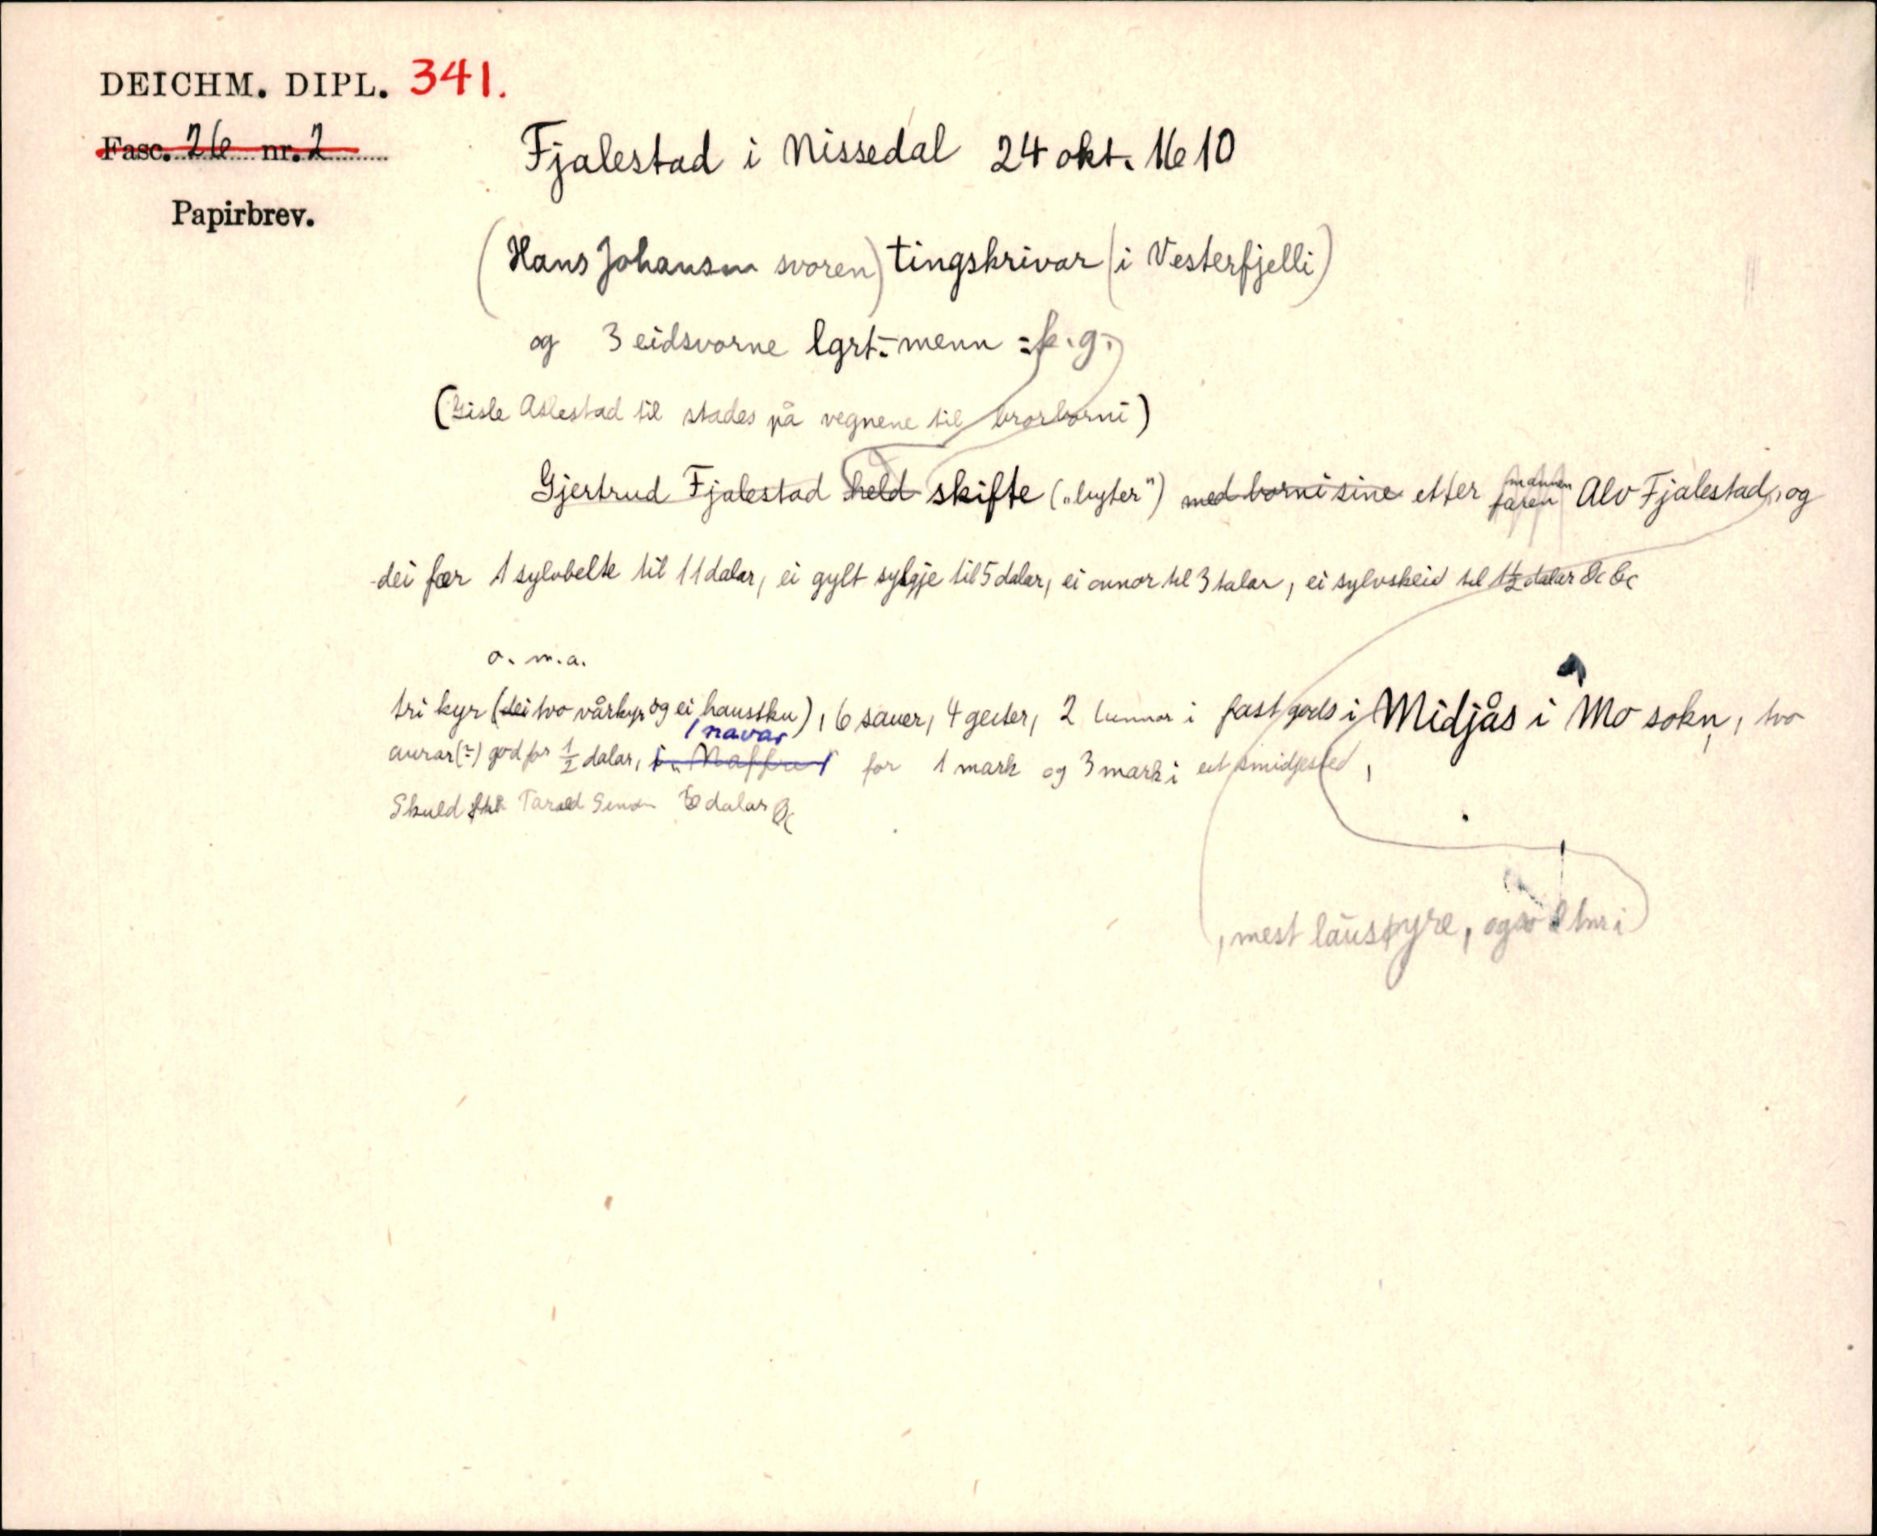 DEICHM. DIPL. 341.
Fasc. 26 nr. 2
Papirbrev.
Fjalestad i Nissedal 24 okt. 1610
(Hans Johansen svoren) tingskrivar (i Vesterfjelli)
og 3 eidsvorne lgrt.-menn : k.g.
(Gisle Aslestad til stades på vegnene til brorborni)
Gjertrud Fjalestad held skifte („byter") med borni sine etter faren mannen Alv Fjalestad, og
dei fær 1 sylvbelte til 11 dalar, ei gylt sylgje til 5 dalar, ei onnor til 3 dalar, ei sylvskeid til 1½ dalar &c &c
o. m.a.
tri kyr (dei tvo vårkyr og ei haustku), 6 sauer, 4 geiter, 2 tunnor i fast gods i Midjås i Mo sokn, tvo
aurar(?) god for ½ dalar, 1 navar for 1 mark og 3 mark i eit smidjested,
Skuld Tarald dalar &c
, mest lausøyre, også 2 tnr i